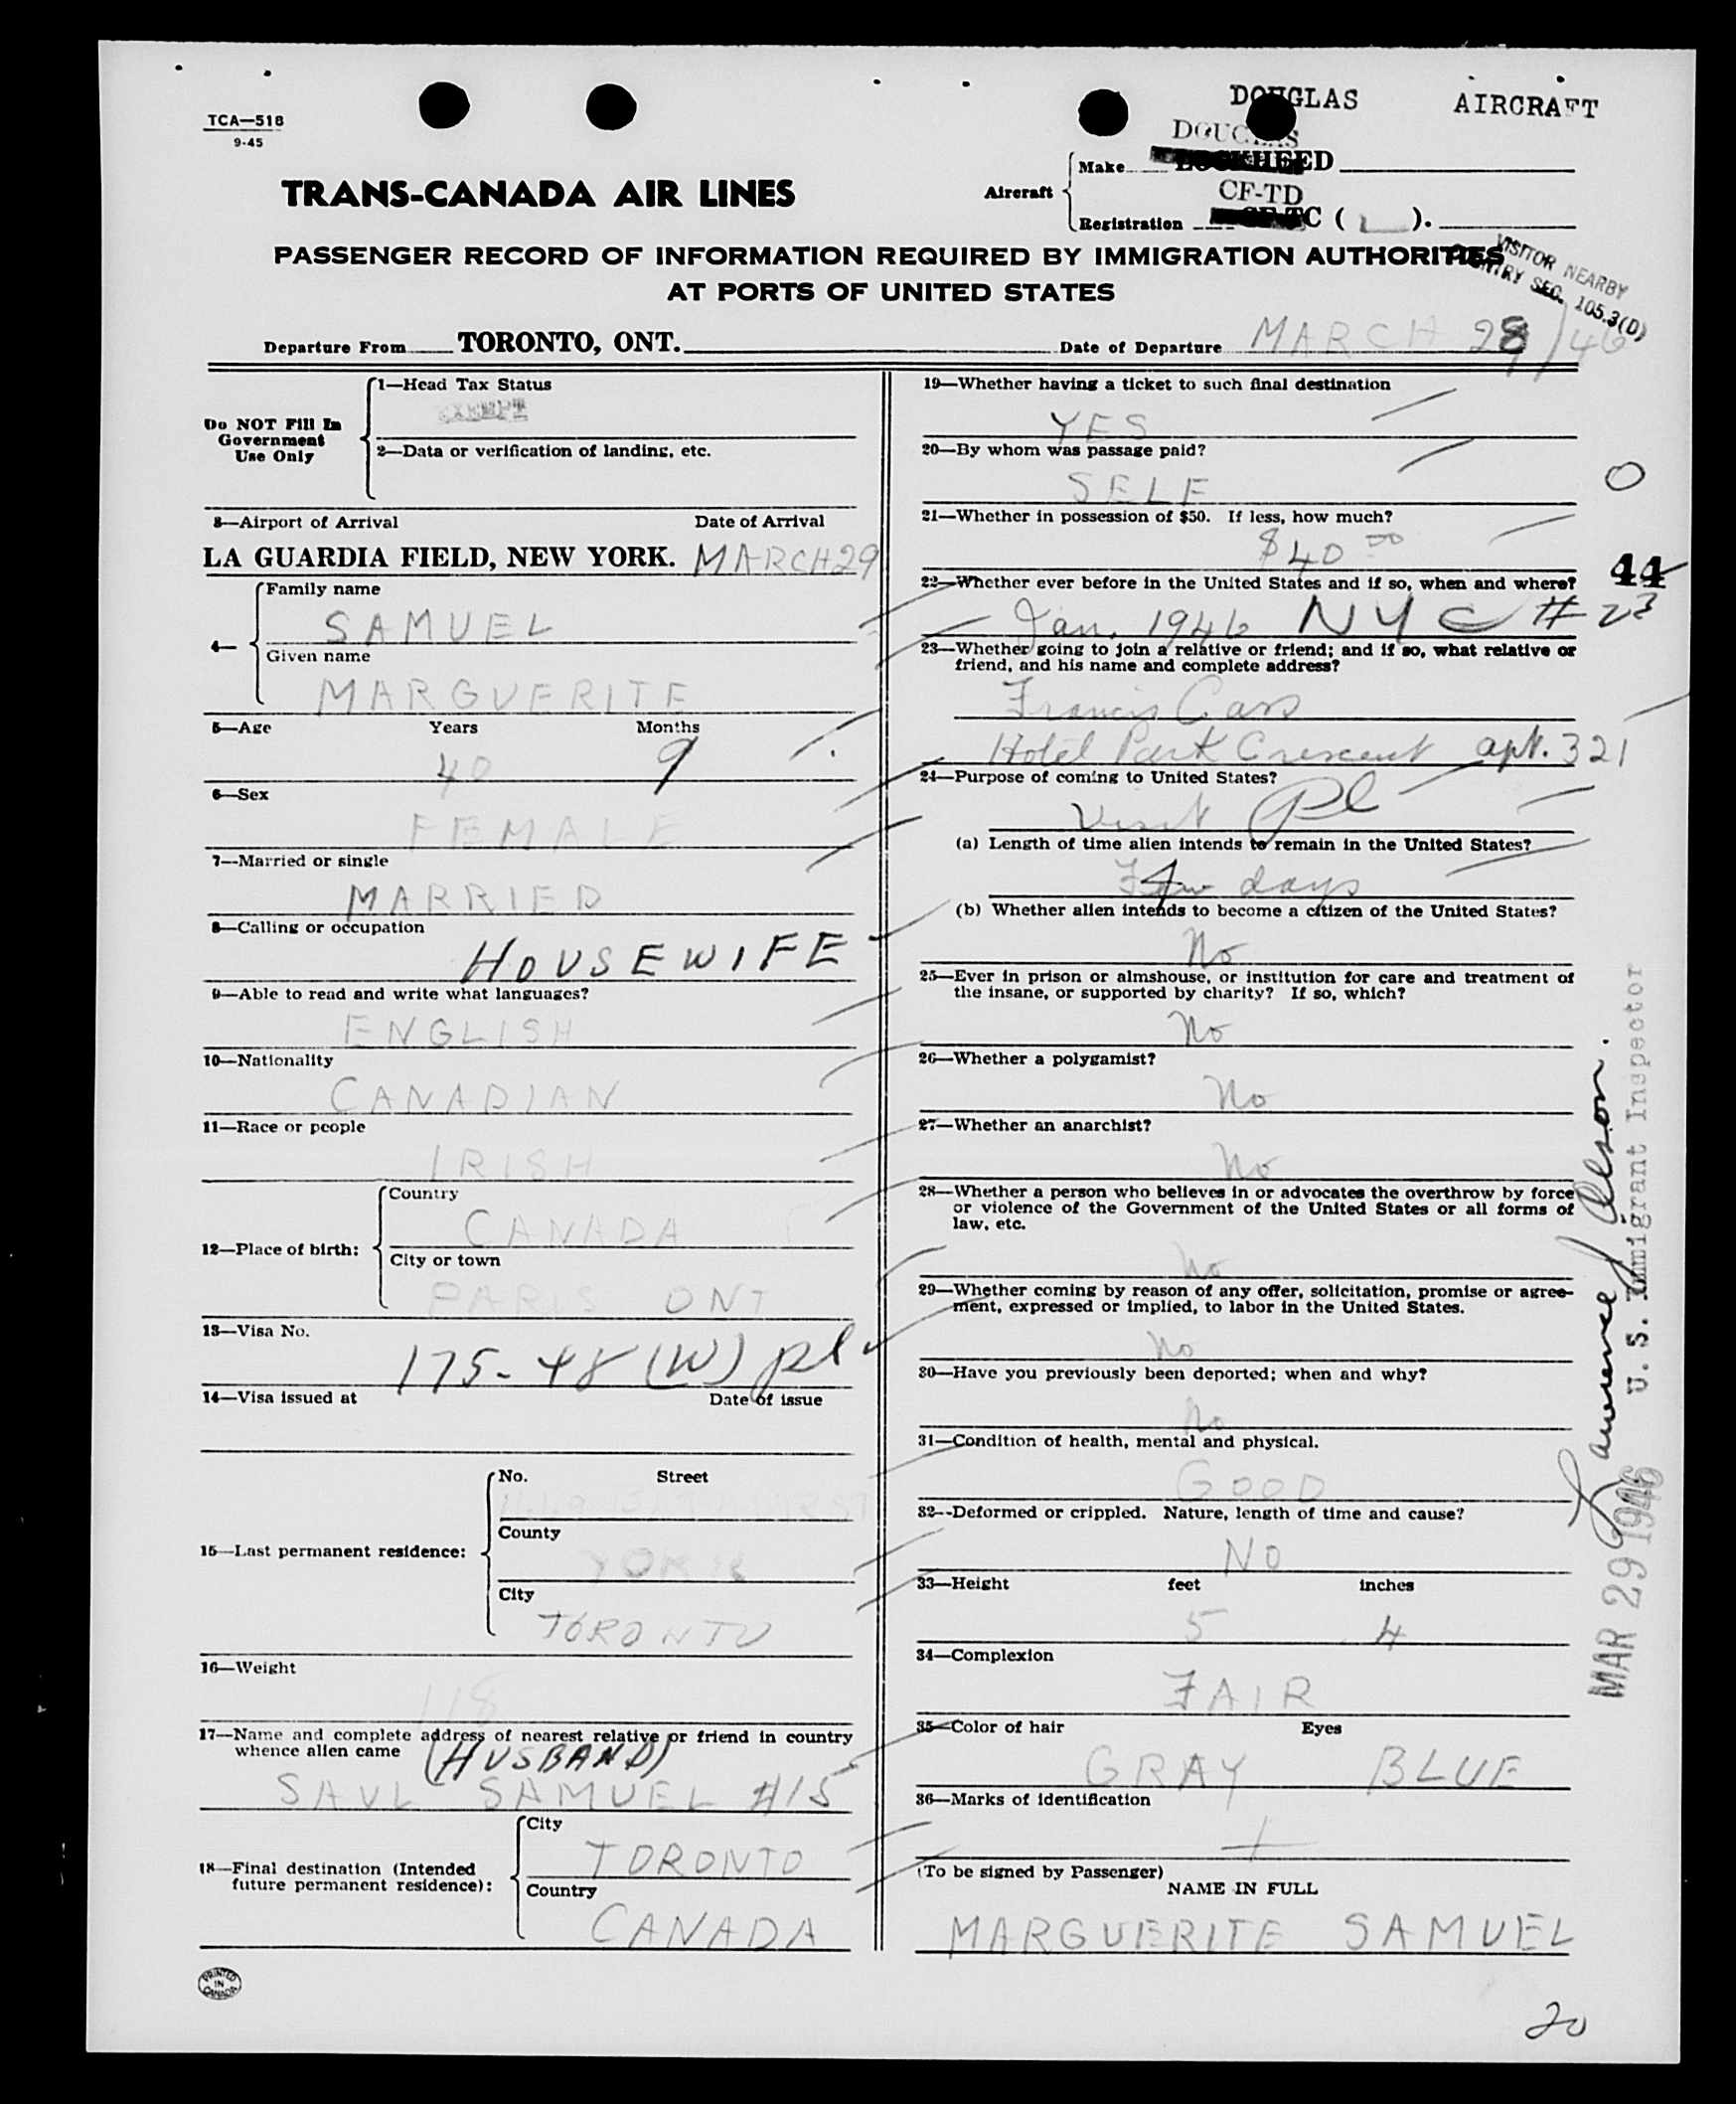 DOUGLAS AIRCRAFT
TCA—518
9-45
DOUGLAS
Make LOCKHEED
TRANS-CANADA AIR LINES
Aircraft
CF-TD
Registration CF-TC ( L ).
PASSENGER RECORD OF INFORMATION REQUIRED BY IMMIGRATION AUTHORITIES
AT PORTS OF UNITED STATES
VISITOR NEARBY
SEC. 105.3(D)
Departure From TORONTO, ONT. Date of Departure MARCH 29/46
Do NOT Fill In
Government
Use Only
1—Head Tax Status
EXEMPT
2—Data or verification of landing, etc.
3—Airport of Arrival Date of Arrival
LA GUARDIA FIELD, NEW YORK. MARCH 29
4—
Family name
SAMUEL
Given name
MARGUERITE
5—Age Years Months
40 9
6—Sex
FEMALE
7—Married or single
MARRIED
8—Calling or occupation
HOUSEWIFE
9—Able to read and write what languages?
ENGLISH
10—Nationality
CANADIAN
11—Race or people
IRISH
12—Place of birth:
Country
CANADA
City or town
PARIS ONT
13—Visa No.
175-48 (W) pl
14—Visa issued at Date of issue
15—Last permanent residence:
No. Street
County
YORK
City
TORONTO
16—Weight
118
17—Name and complete address of nearest relative or friend in country
whence alien came (HUSBAND)
SAUL SAMUEL #15
18—Final destination (Intended
future permanent residence):
City
TORONTO
Country
CANADA
PRINTED
IN
CANADA
19—Whether having a ticket to such final destination
YES
20—By whom was passage paid?
SELF
0
21—Whether in possession of $50. If less, how much?
$40 00
44
22—Whether ever before in the United States and if so, when and where?
Jan. 1946 NYC #23
23—Whether going to join a relative or friend; and if so, what relative or
friend, and his name and complete address?
Francis Cass
Hotel Park Crescent apt. 321
24—Purpose of coming to United States?
Visit Pl
(a) Length of time alien intends to remain in the United States?
Few 4 days
(b) Whether alien intends to become a citizen of the United States?
No
25—Ever in prison or almshouse, or institution for care and treatment of
the insane, or supported by charity? If so, which?
No
26—Whether a polygamist?
No
27—Whether an anarchist?
No
28—Whether a person who believes in or advocates the overthrow by force
or violence of the Government of the United States or all forms of
law, etc.
No
29—Whether coming by reason of any offer, solicitation, promise or agree-
ment, expressed or implied, to labor in the United States.
No
30—Have you previously been deported; when and why?
No
31—Condition of health, mental and physical.
GOOD
32—Deformed or crippled. Nature, length of time and cause?
NO
33—Height feet inches
5 4
34—Complexion
FAIR
35—Color of hair Eyes
GRAY BLUE
36—Marks of identification
(To be signed by Passenger)
NAME IN FULL
MARGUERITE SAMUEL
20
Lawrence J Olson.
U. S. Immigrant Inspector
MAR 29 1946